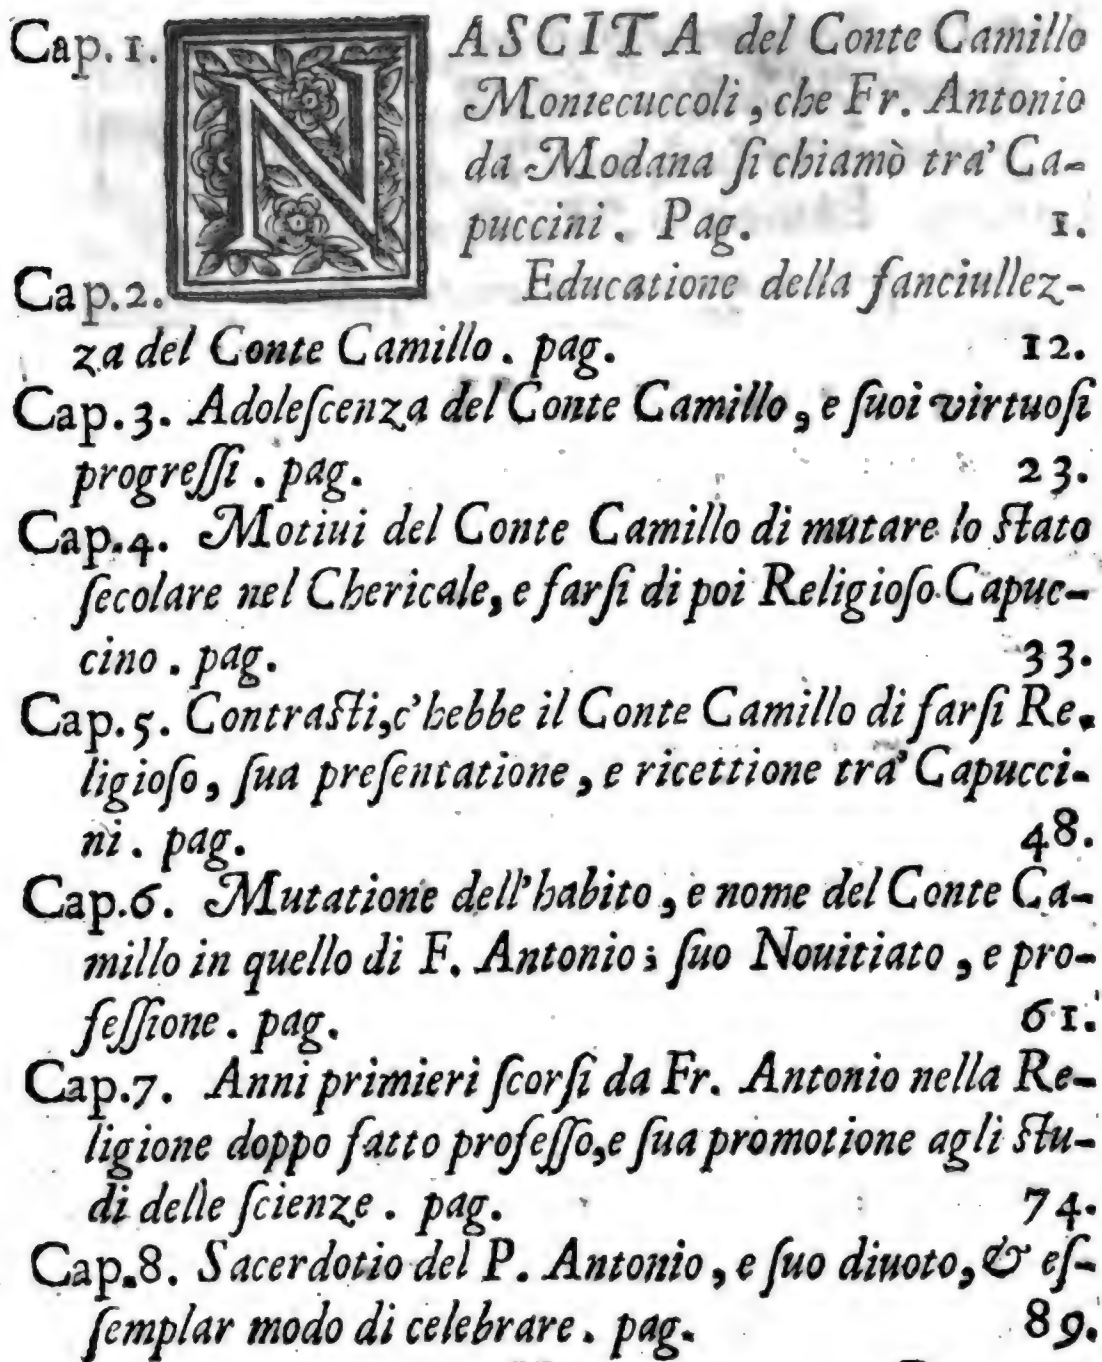 Cap. 1. NASCITA del Conte Camillo
Montecuccoli, che Fr. Antonio
da Modana ſi chiamò tra' Ca-
puccini. Pag. 1.
Cap. 2. Educatione della fanciullez-
za del Conte Camillo. pag. 12.
Cap. 3. Adoleſcenza del Conte Camillo, e ſuoi virtuoſi
progreſſi. pag. 23.
Cap. 4. Motiui del Conte Camillo di mutare lo ſtato
ſecolare nel Chericale, e farſi di poi Religioſo Capuc-
cino. pag. 33.
Cap. 5. Contraſti, c'hebbe il Conte Camillo di farſi Re-
ligioſo, ſua preſentatione, e ricettione tra' Capucci-
ni. pag. 48.
Cap. 6. Mutatione dell'habito, e nome del Conte Ca-
millo in quello di F. Antonio; ſuo Nouitiato, e pro-
feſſione. pag. 61.
Cap. 7. Anni primieri ſcorſi da Fr. Antonio nella Re-
ligione doppo fatto profeſſo, e ſua promotione agli ſtu-
di delle ſcienze. pag. 74.
Cap. 8. Sacerdotio del P. Antonio, e ſuo diuoto, & eſ-
ſemplar modo di celebrare. pag. 89.